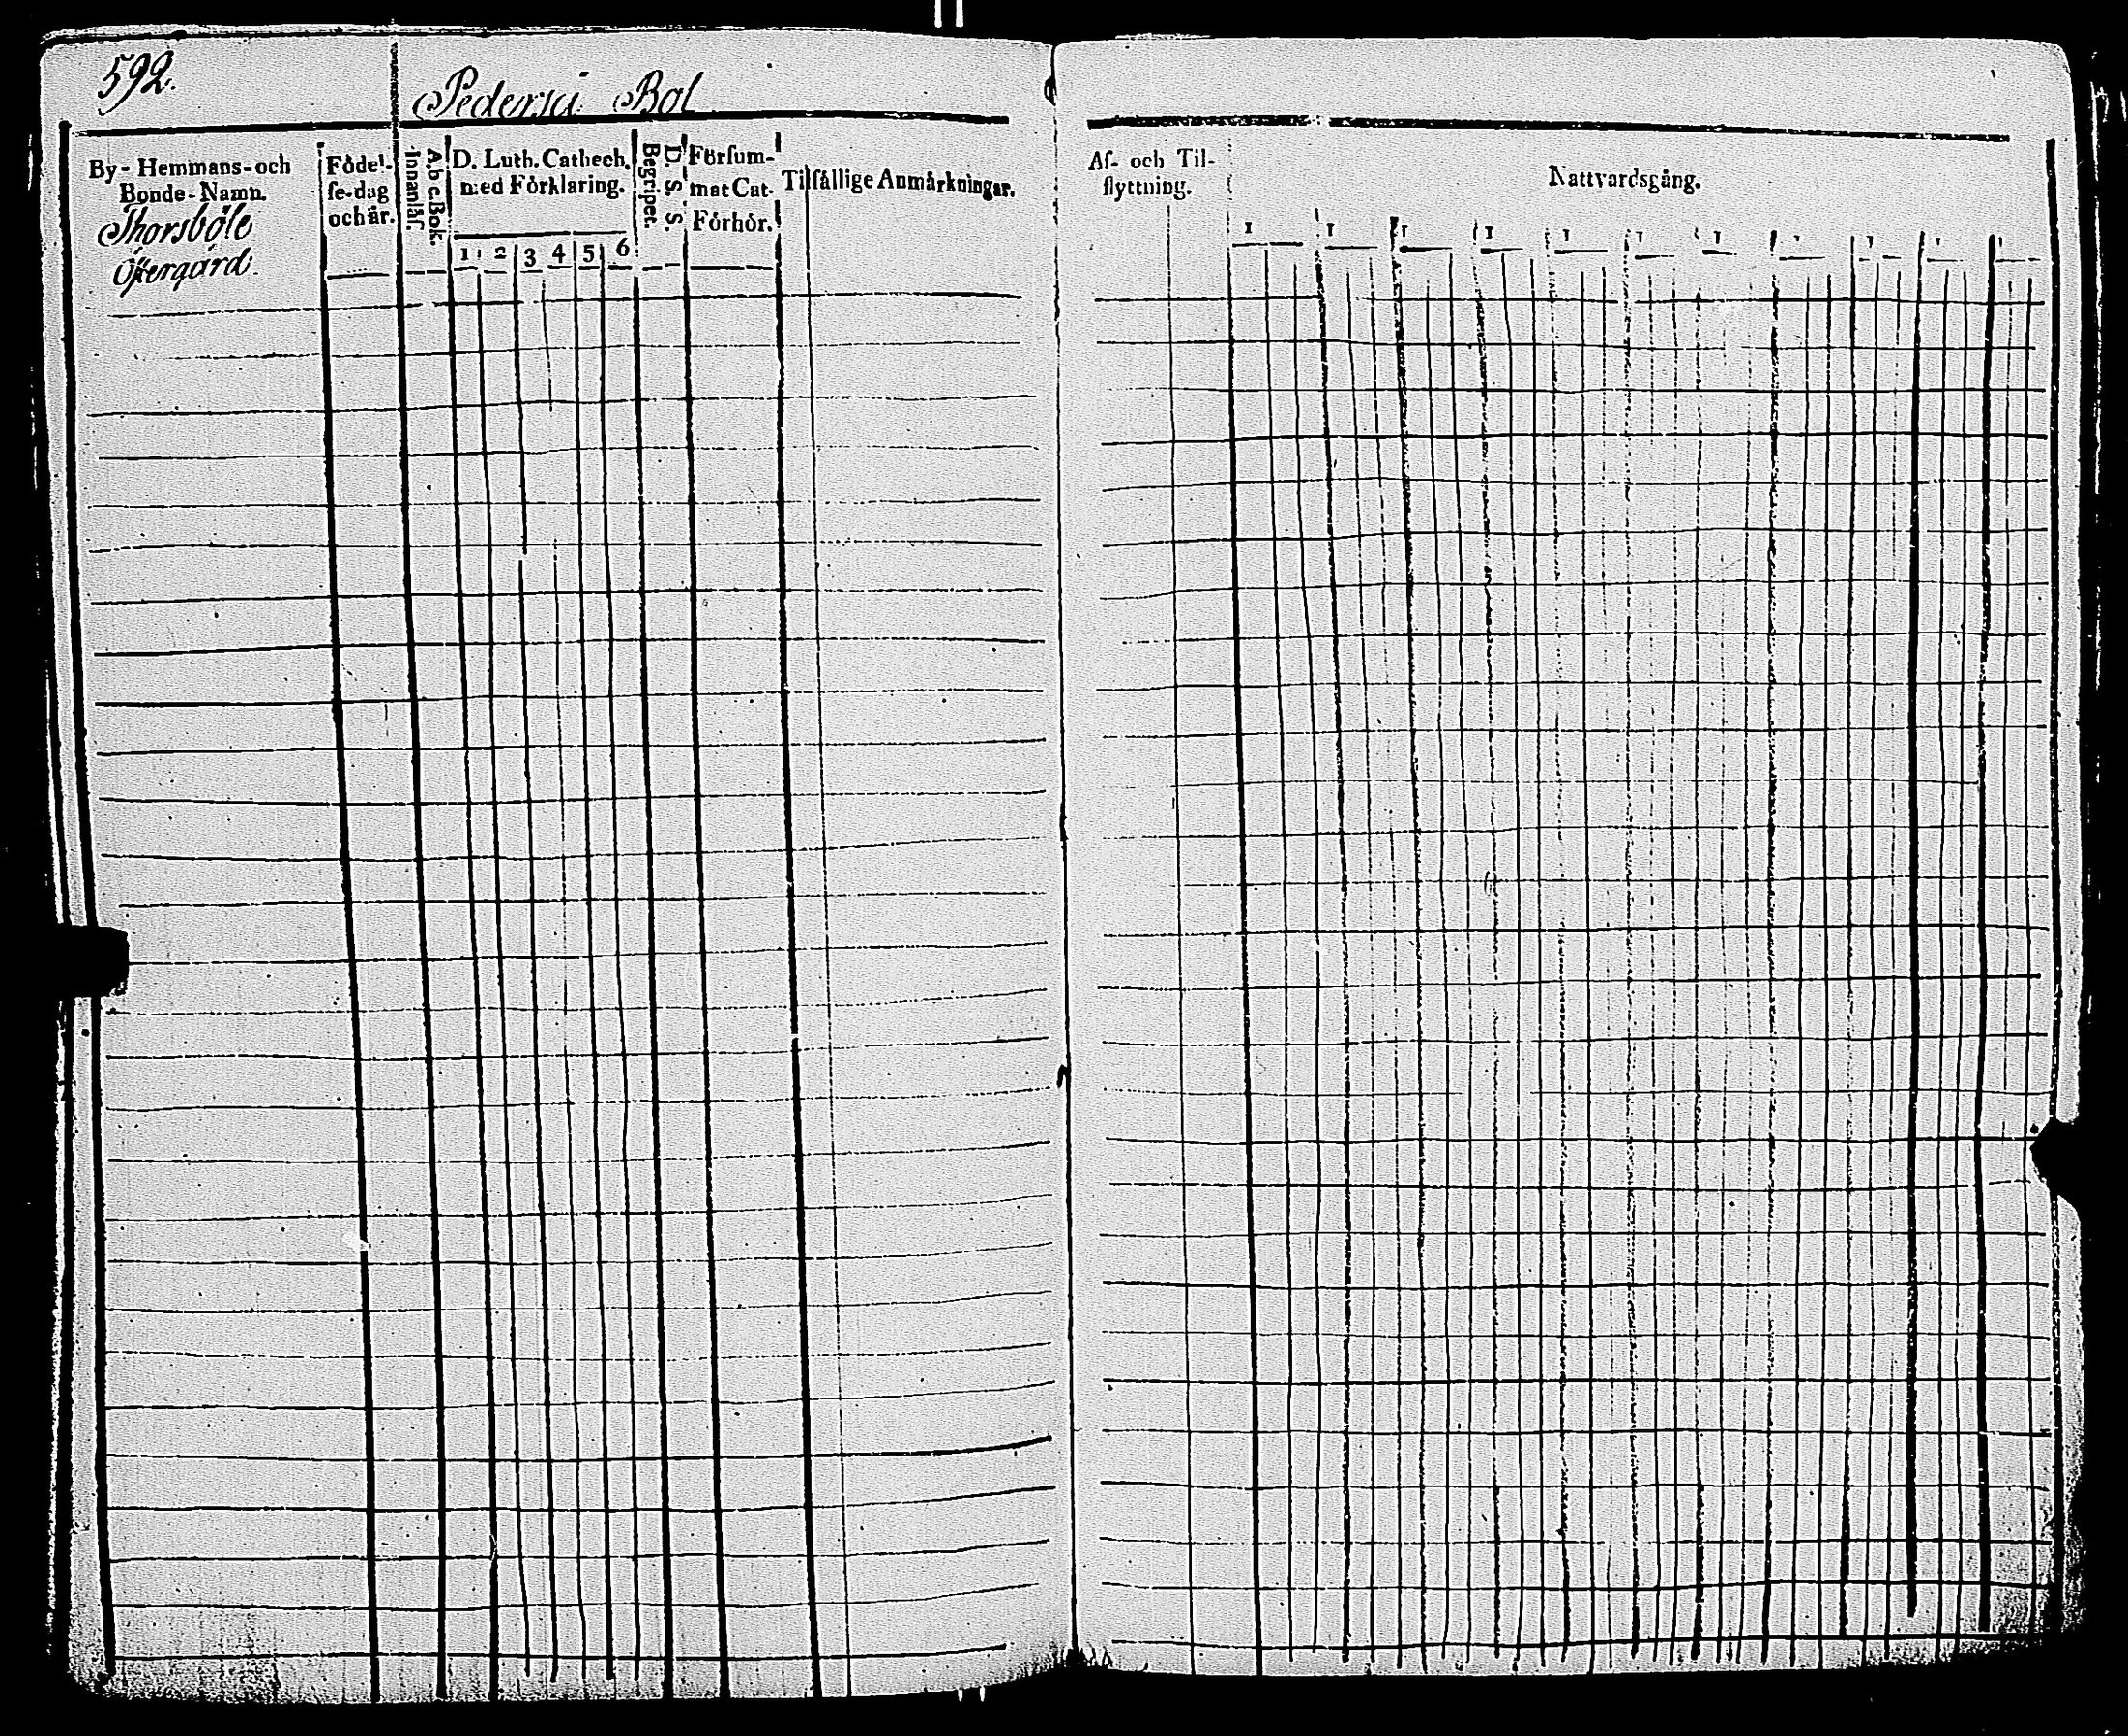 592.
Pederså Bol
By- Hemmans- och
Bonde- Namn.
Thorsböle
Östergård.
Födel-
se-dag
och år.
A b c Bok.
Innanläs.
D. Luth. Cathech.
med Förklaring.
1 2 3 4 5 6
D. S. S.
Begripet.
Försum-
mat Cat.
Förhör.
Tilfällige Anmärkningar.
Af- och Til-
flyttning.
Nattvardsgång.
1 1 1 1 1 1 1 1 1 1